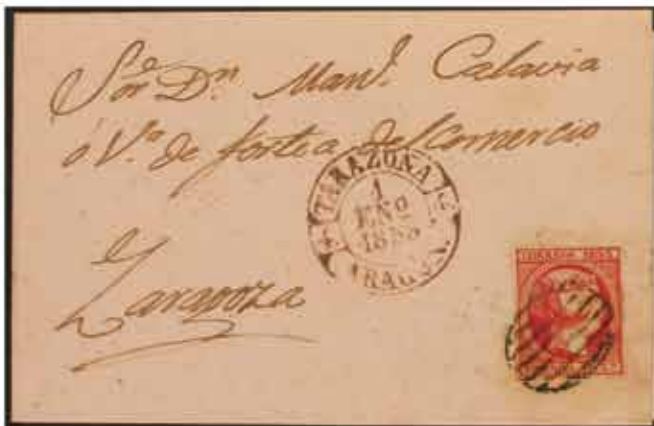 Sor Dn. Manl. Calavia
ó Va. de fortea del Comercio
TARAZONA
1
ENº
1853
ARAGON.
Zaragoza
CORREOS 1853